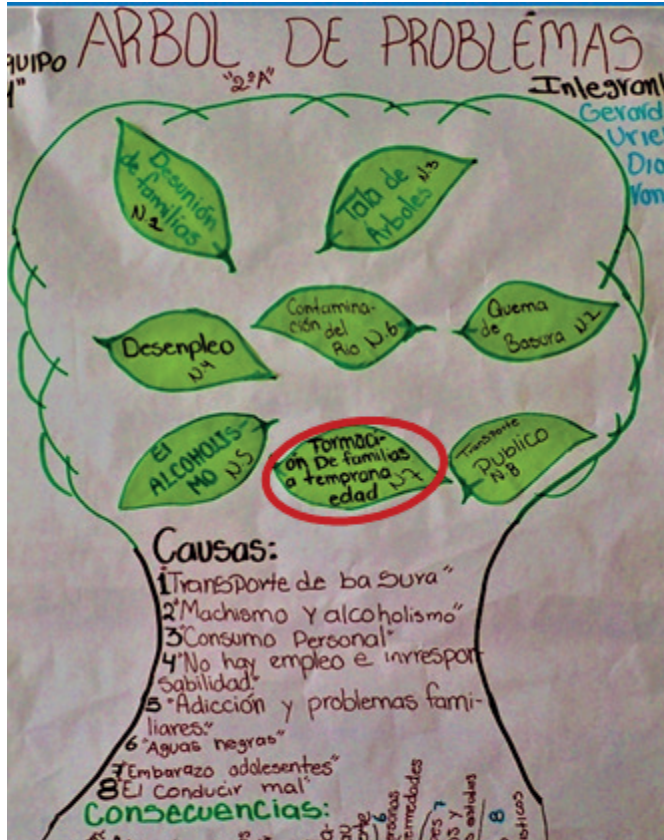 ARBOL DE PROBLEMAS
"2ºA"
Gerard
Urie
Desunión
de familias
N.2
Tala de
Arboles N.3
Desenpleo
N.4
Contamina-
ción del
Rio N.6
Quema
de
Basura N.1
El
ALCOHOLIS-
MO N.5
Formaci-
ón De familias
a temprana
edad N.7
Transporte
Publico
N.8
Causas:
1"Transporte de basura"
2"Machismo y alcoholismo"
3"Consumo Personal"
4"No hay empleo e inrrespon
sabilidad"
5 "Adicción y problemas fami-
liares."
6 "Aguas negras"
7"Embarazo adolesentes"
8"El conducir mal"
Consecuencias:
6
7
8